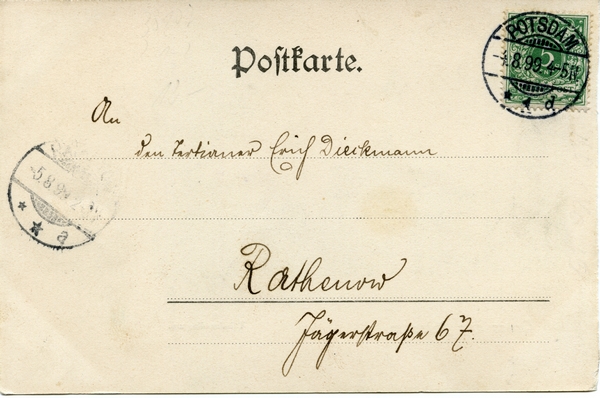 POTSDAM
-4.8.99.4-5N
* 1 d
5
Postkarte.
An
den Tertianer Erich Dieckmann
5.8.99
* * a
Rathenow
Jägerstraße 67.